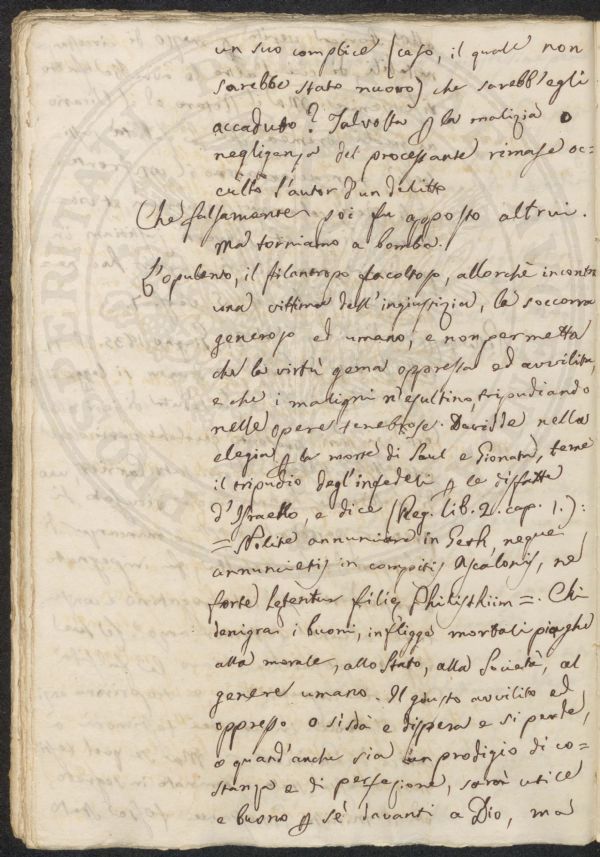 un suo complice (caso, il quale non
sarebbe stato nuovo) che sarebb'egli
accaduto? Talvolta p la malizia o
negligenza del processante rimase oc=
culto l'autor d'un delitto
Che falsamente poi fu apposto altrui.
Ma torniamo a bomba.
L'opulento, il filantropo facoltoso, allorchè incontra
una vittima dell'ingiustizia, la soccorra
generoso ed umano, e non permetta
che la virtù gema oppressa ed avvilita,
e che i maligni n'esultino, tripudiando
nelle opere tenebrose. Davidde nella
elegia p la morte di Saul e Gionata, teme
il tripudio degl'infedeli p le disfatte
d'Israello, e dice (Reg. lib. 2. cap. 1.):
= Nolite annunciare in Geth, neque
annuncietis in compitis Ascalonis, ne
forte letentur filię Philisthiim =. Chi
denigra i buoni, infligge mortali piaghe
alla morale, allo Stato, alla Società, al
genere umano. Il giusto avvilito ed
oppresso o si dà e dispera e si perde,
o quand'anche sia un prodigio di co=
stanza e di perfezione, sarà utile
e buono p sè davanti a Dio, ma